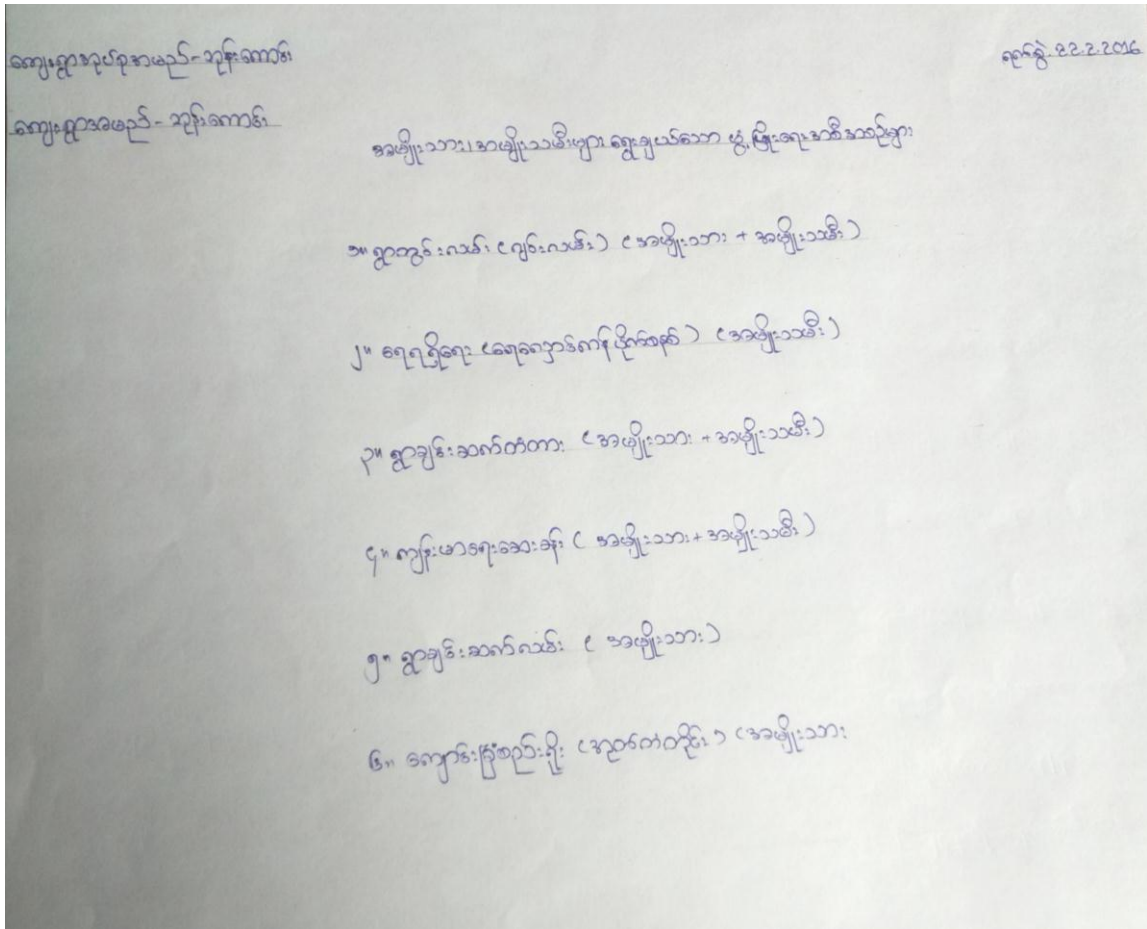 ကျေးရွာအုပ်စုအမည်-ဘုန်းကောင်း
ရက်စွဲ. 22.2.2016
ကျေးရွာအမည် - ဘုန်းကောင်း
အမျိုးသား၊ အမျိုးသမီးများ ရွေးချယ်သော ဖွံ့ဖြိုးရေးအစီအစဉ်များ
၁။ ရွာတွင်းလမ်း (ဂျင်းလမ်း) (အမျိုးသား + အမျိုးသမီး)
၂။ ရေရရှိရေး (ရေလှောင်ကန် ပိုက်စနစ်) (အမျိုးသမီး)
၃။ ရွာချင်းဆက်တံတား (အမျိုးသား + အမျိုးသမီး)
၄။ ကျန်းမာရေးဆေးခန်း ( အမျိုးသား + အမျိုးသမီး)
၅။ ရွာချင်းဆက်လမ်း ( အမျိုးသား)
၆။ ကျောင်းခြံစည်းရိုး (အုတ်တံတိုင်း) (အမျိုးသား